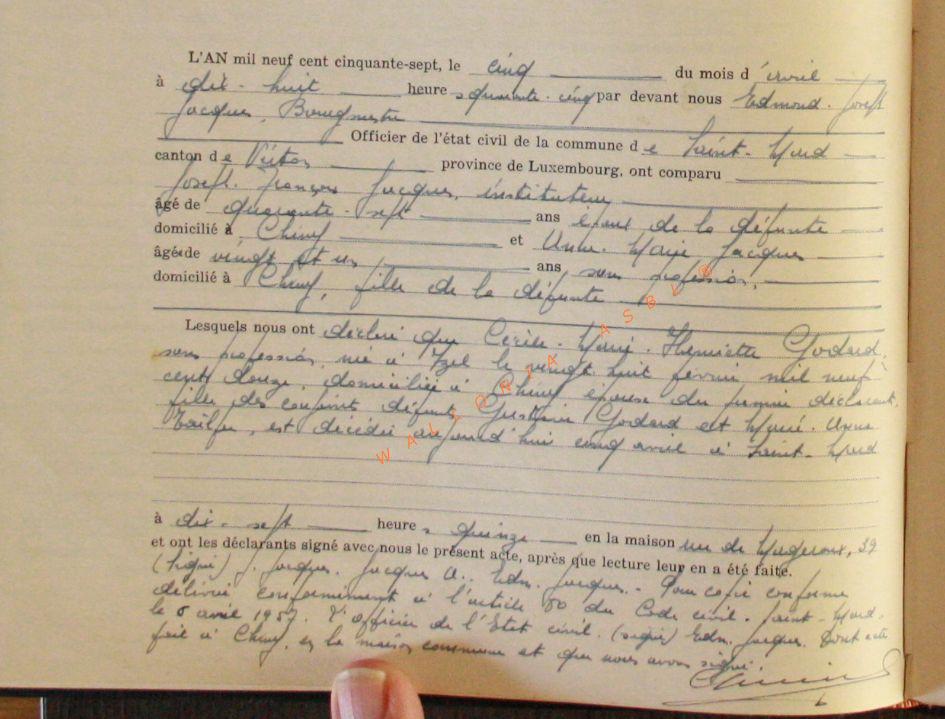 L'AN mil neuf cent cinquante-sept, le cinq du mois d'avril
à dix-huit heures quarante-cinq par devant nous Edmond-Joseph
Jacques, Bourgmestre
Officier de l'état civil de la commune de Saint-Mard
canton de Virton province de Luxembourg, ont comparu
Joseph-François Jacques, instituteur
âgé de quarante-sept ans époux de la défunte
domicilié à Chiny et Anne-Marie Jacques
âgée de vingt et un ans sans profession,
domicilié à Chiny, fille de la défunte
Lesquels nous ont déclaré que Cécile-Marie-Henriette Godard,
sans profession, née à Izel le vingt huit février mil neuf
cent douze, domiciliée à Chiny épouse du premier déclarant,
fille des conjoints défunts Godard et Marie-Anne
est décédée aujourd'hui cinq avril à Saint-Mard
à dix-sept heures quinze en la maison rue de 39
et ont les déclarants signé avec nous le présent acte, après que lecture leur en a été faite.
(signé) J. Jacques. Jacques A.. Edm. Jacques.- Pour copie conforme
délivrée conformément à l'article 80 du Code civil. Saint-Mard.
le 6 avril 1957. L'officier de l'Etat civil. (signé) Edm. Jacques. Dont acte
fait à Chiny, en la maison commune et que nous avons signé.
WALLONIA ASBL ©